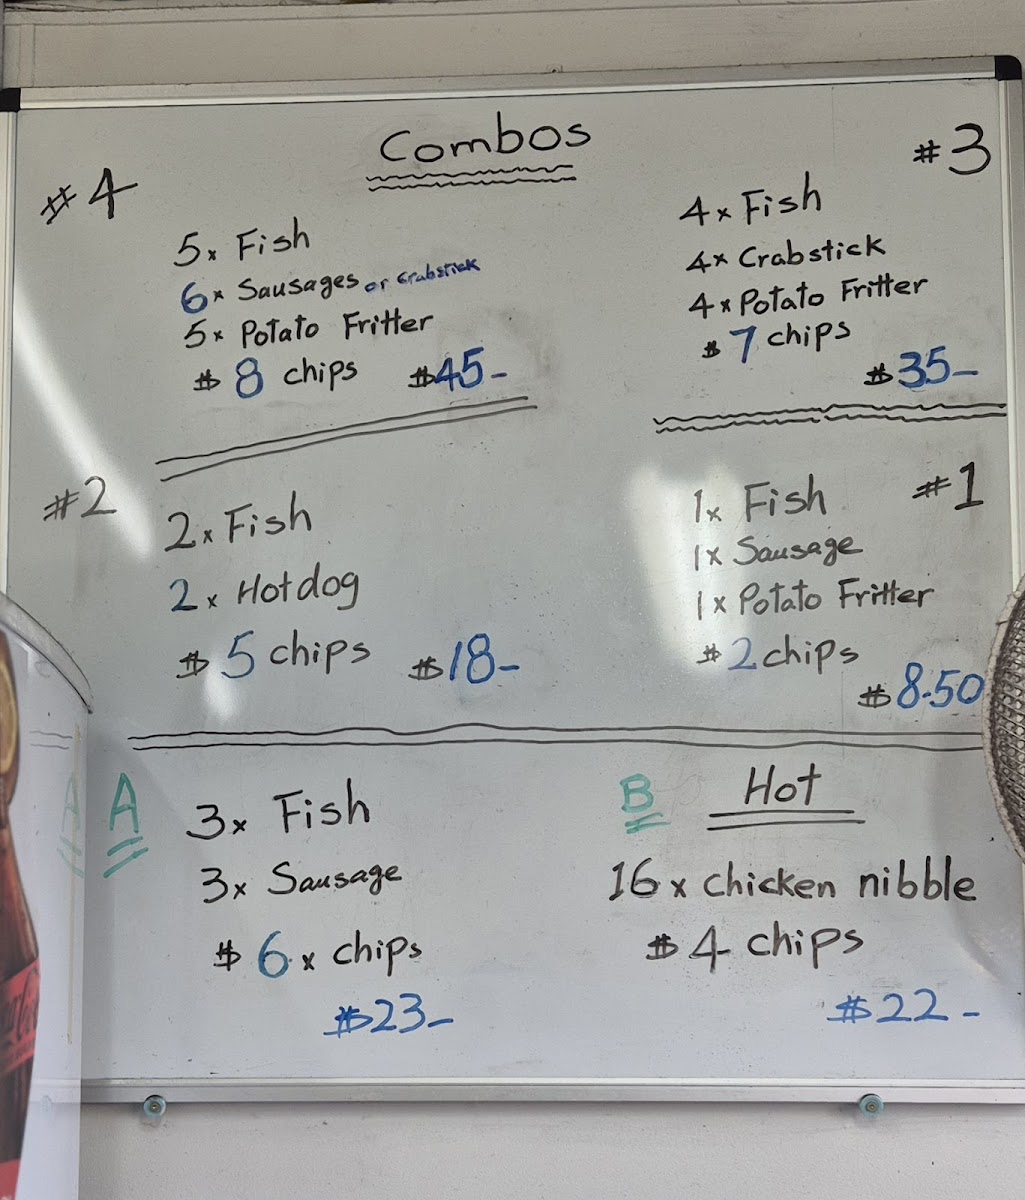 Combos
#4
5x Fish
6x Sausages or Crabstick
5x Potato Fritter
$ 8 chips $45-
#3
4x Fish
4x Crabstick
4x Potato Fritter
$ 7 chips
$35-
#2
2x Fish
2x Hotdog
$ 5 chips $18-
#1
1x Fish
1x Sausage
1x Potato Fritter
$ 2 chips
$8.50
A
3x Fish
3x Sausage
$ 6x chips
$23-
B Hot
16x chicken nibble
$ 4 chips
$22-